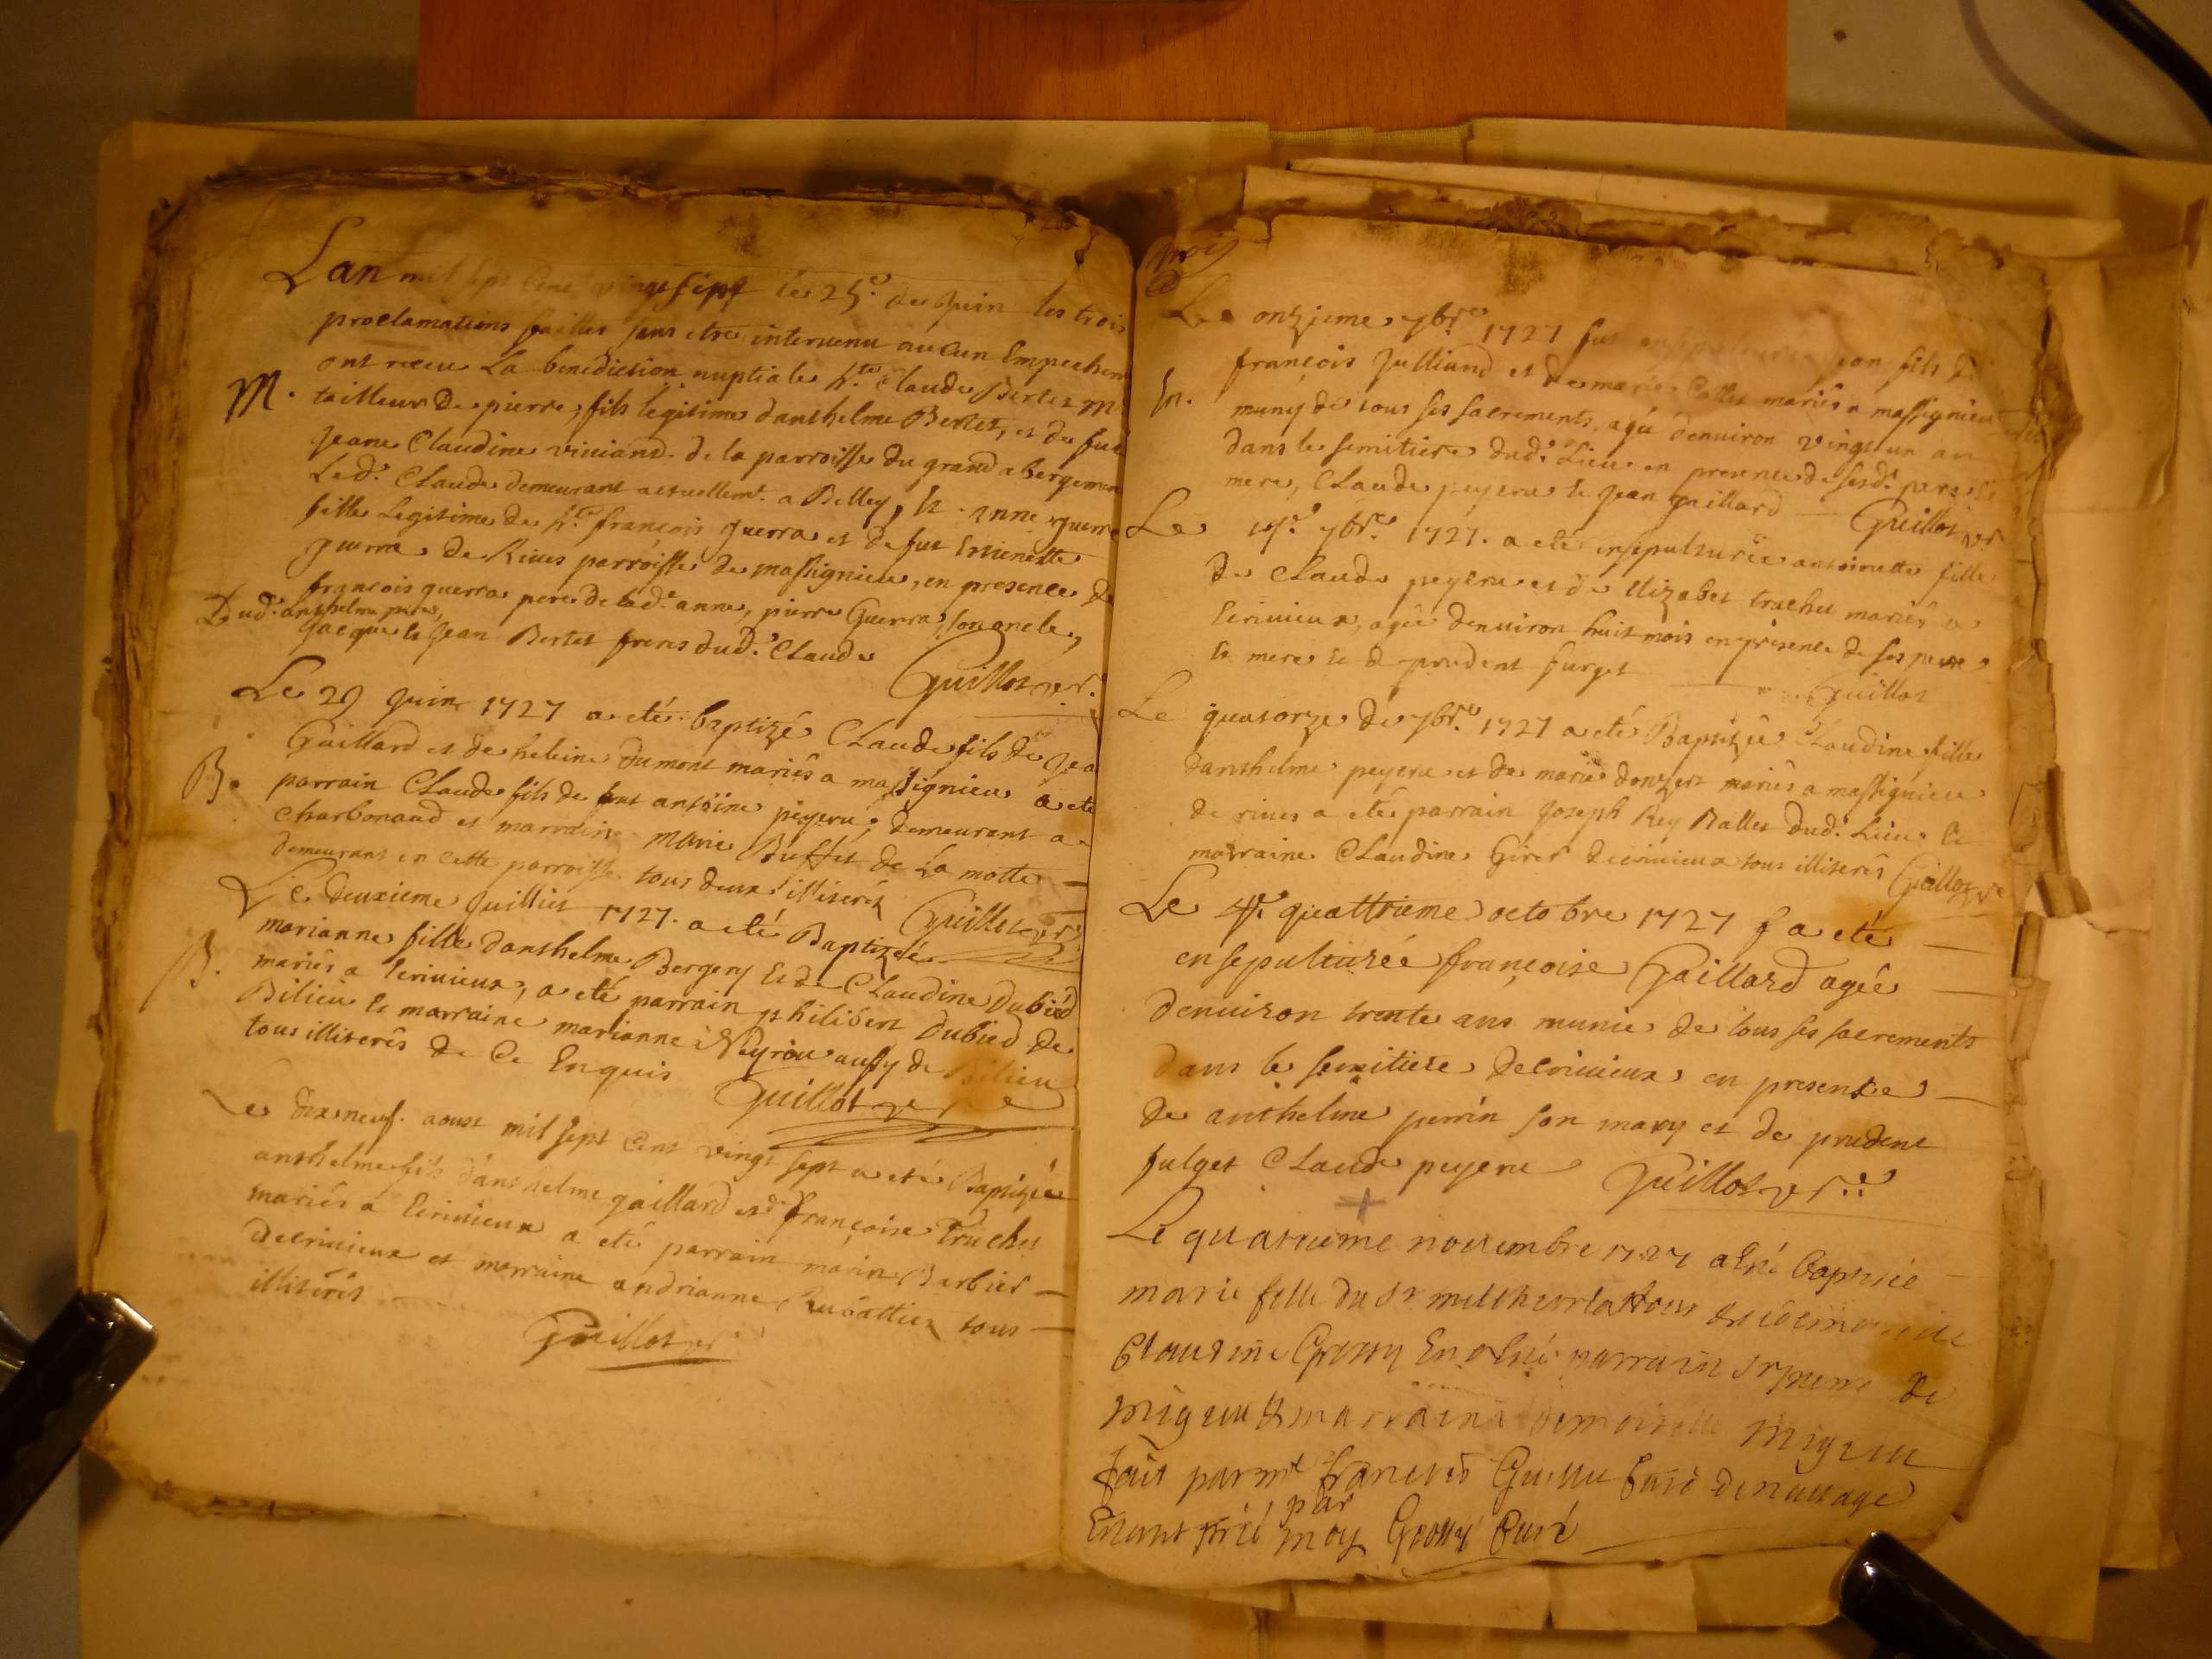 Lan mil sept Cent vingt sept le 25e de Juin les trois
proclamations faittes sans etre intervenu aucun Empechem
ont receu La benediction nuptiale h.te Claude Bertet m
M. tailleur De pierre, fils legitime danthelme Bertet, et de fut
Jeane Claudine viviand de la parroisse du grand abergement
Led.t Claude demeurant actuellemt. a Belley, Et anne guerra
fille Legitime de h.te françois guerra et de fut Estienette
guerra de Rives parroisse de massignieu, en presence de
françois guerra pere de lad.e anne, pierre Guerra, son oncle,
Dud.t anthelme pere,
Jacque Et Jean Bertet freres dud.t Claude
Guillot
Le 29 Juin 1727 a eté baptizé Claude fils de Jea
Gaillard et de heleine Dumont mariés a massignieu a eté
B. parrain Claude fils de fut antoine peyeru, demeurant a
Charbonaud et marraine Marie Buffet de La motte
demeurant en cette parroisse tous deux illiterés
Guillot
Le deuxieme Juilliet 1727. a eté Baptizeé
marianne fille danthelme Bergery Et de Claudine Dubied
B. mariés a Ecrivieux, a eté parrain philibert Dubied de
Bilieu Et marraine marianne Neyrou aussy de Bilieu
tous illiterés de Ce Enquis
Guillot
Le dix neuf aoust mil sept Cent vingt sept a eté Baptizeé
anthelme fils danthelme gaillard et de françoise Truchet
mariés a Ecrivieux a eté parrain marin Barbier
decrivieux et marraine andrianne Rubattier tous
illiterés
Guillot
trois
Le onzjeme 7bre 1727 fut ensepulturé fils de
françois Julliand et de marie Collet mariés a massignieu
En. muny de tous ses sacrements, agé denuiron vingt un an
dans le semitiere dud.t Lieu en presence de sesd.t pere Et
mere, Claude peyeru Et Jean gaillard Guillot
Le 7bre 1727. a eté ensepulturée antoinette fille
de Claude peyeru et de Elizabet truchet mariés a
Ecrivieux, agée denuiron huit mois en presence de ses pere
Et mere Et de prudent furget Guillot
Le quatorze de 7bre 1727 a eté Baptizée Claudine fille
danthelme peyeru et de marie donzert mariés a massignieu
de rives a eté parrain Joseph Rey Ballet dud.t Lieu Et
marraine Claudine Girer decrivieux tous illiterés Guillot
Le quattrieme octobre 1727 a eté
ensepulturée françoise Gaillard agée
denuiron trente ans munie de tous ses sacrements
dans le semitiere decrivieux en presence
de anthelme perrin son mary et de prudent
fulget Claude peyeru Guillot
Le quatrieme novembre 1727 a Eté baptisée
marie fille du Sr
Claudine Grossy En a Eté parrain Sr pierre de
migieu Et marraine demoiselle Migieu
fait par mre françois Curé
Enant prié par moy Grossy Curé